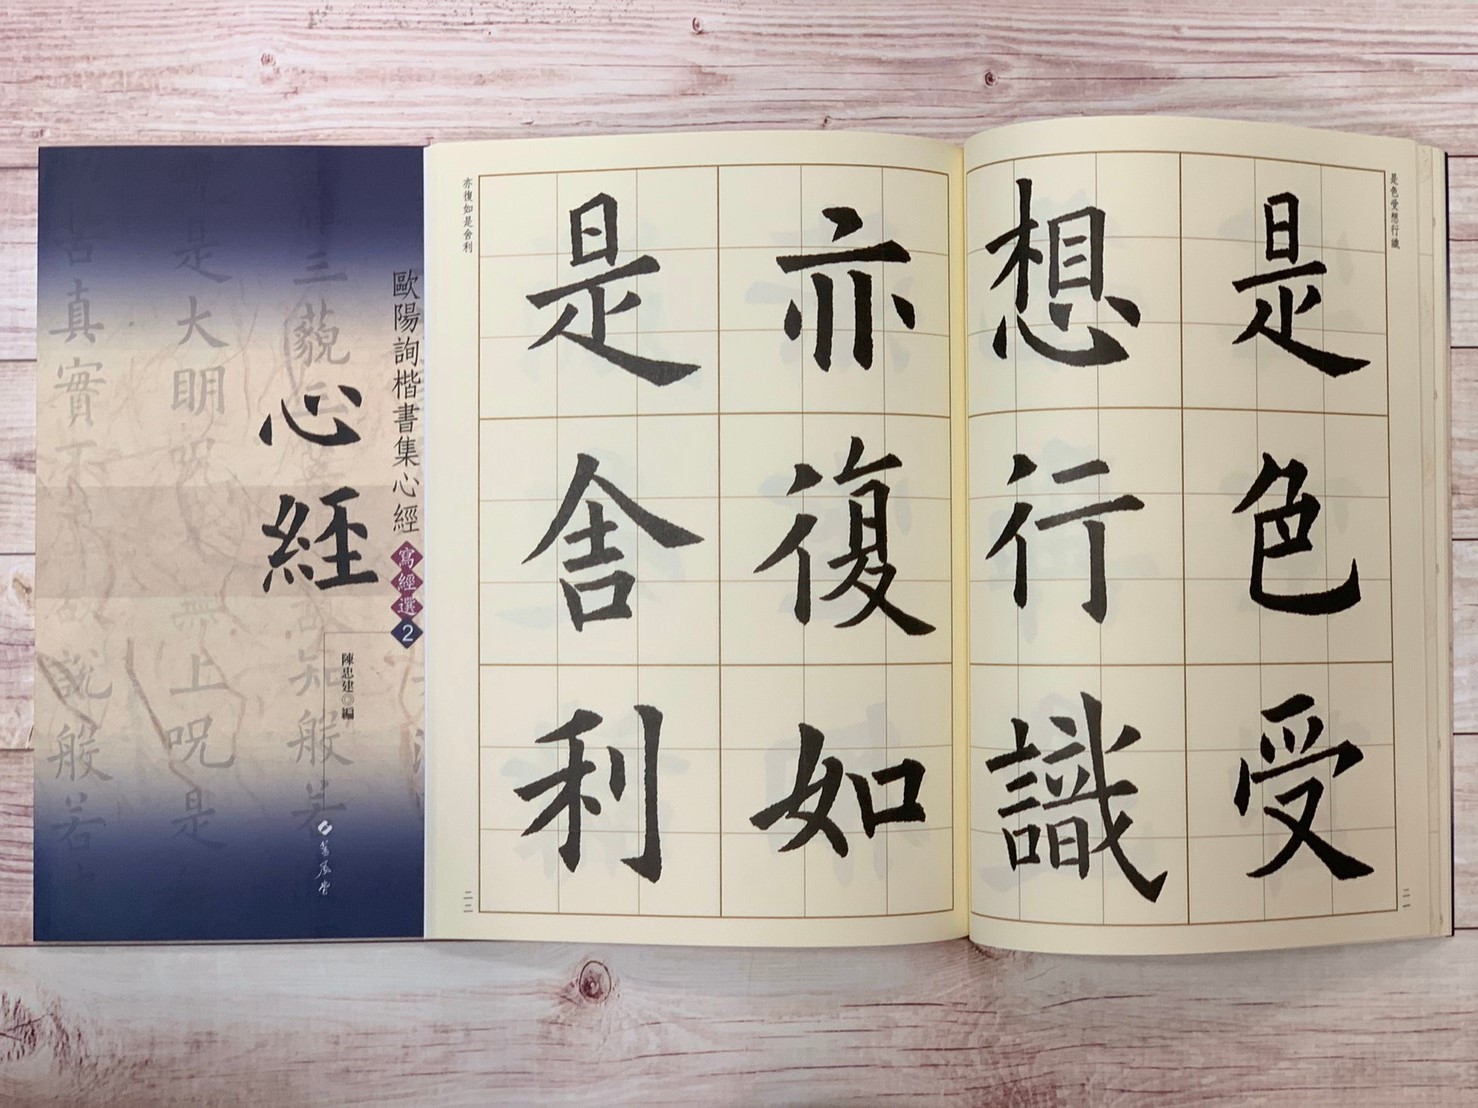 是色受想行識
是色受
想行識
二一
亦復如是舍利
亦復如
是舍利
二二
歐陽詢楷書集心經
寫經選2
陳忠建◎編
心經
三藐三
故知般若
是大明呪
無上呪是
真實不
故說般若
蕙風堂